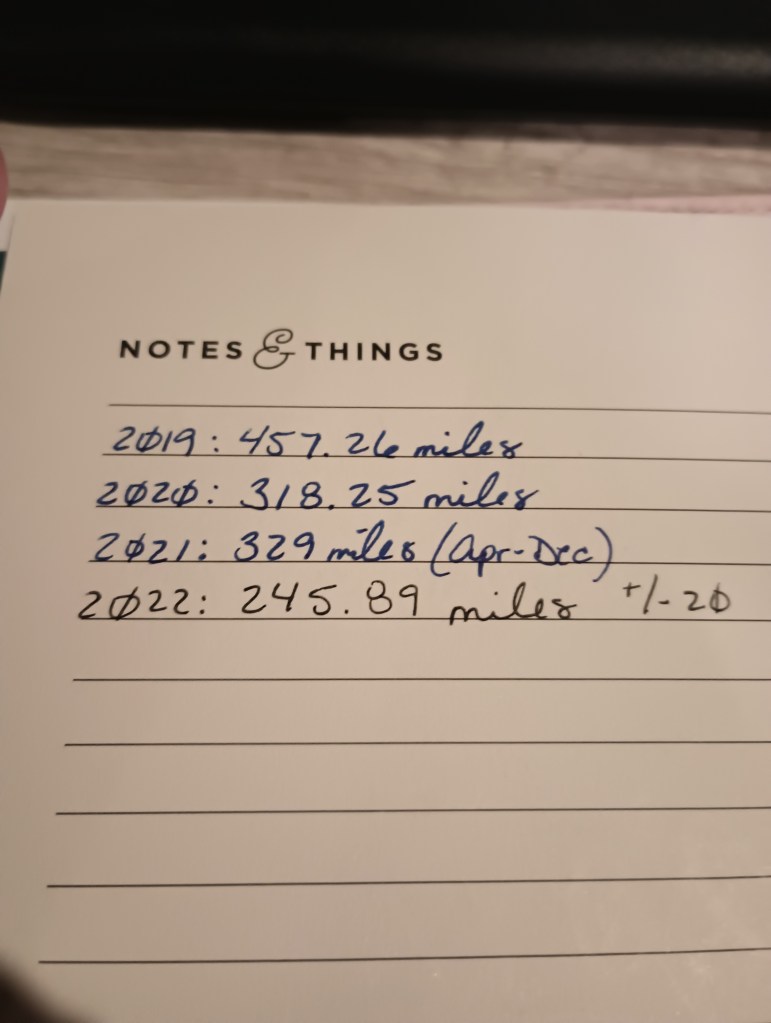 NOTES & THINGS
2019: 457.26 miles
2020: 318.25 miles
2021: 329 miles (Apr-Dec)
2022: 245.89 miles +/- 20